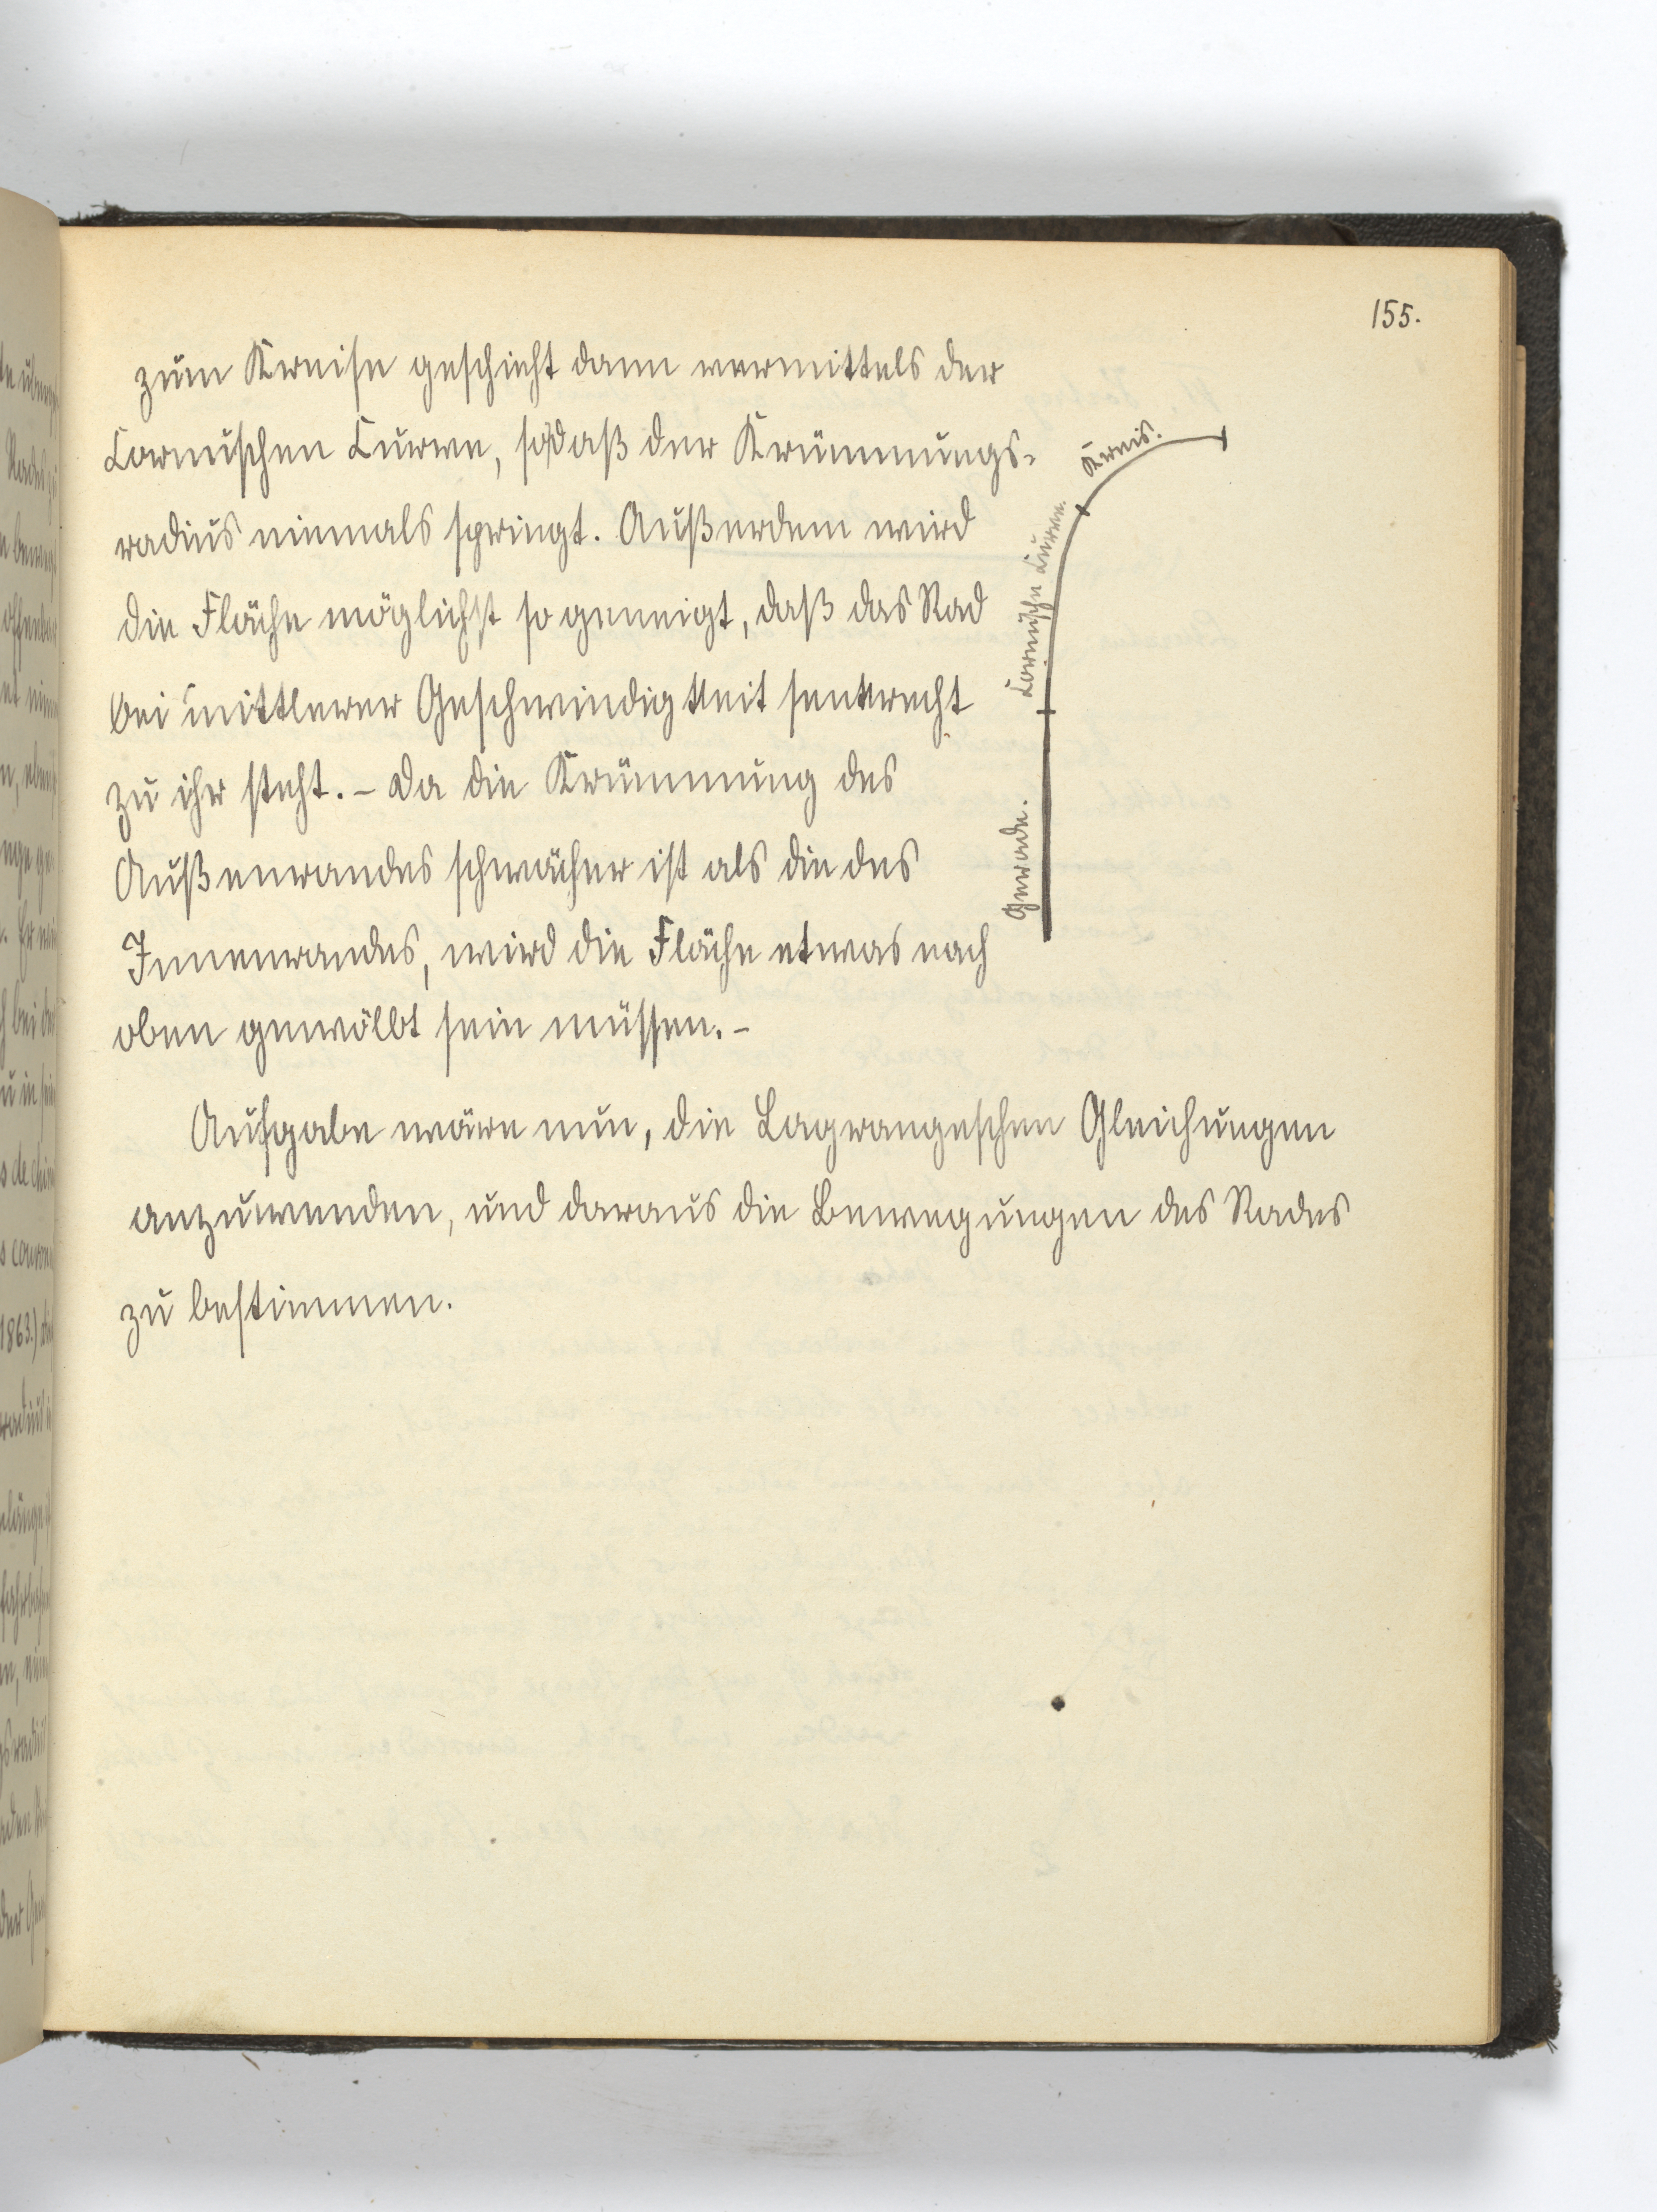 155.
zum Kreise geschieht dann vermittels der
Cornuschen Curve, sodaß der Krümmungs-
radius niemals springt. Außerdem wird
die Fläche möglichst so geneigt, daß das Rad
bei mittlerer Geschwindigkeit senkrecht
zu ihr steht. – Da die Krümmung des
Außenrandes schwächer ist als die des
Innenrandes, wird die Fläche etwas nach
oben gewölbt sein müssen. –
Aufgabe wäre nun, die Lagrangeschen Gleichungen
anzuwenden, und daraus die Bewegungen des Rades
zu bestimmen.
Kreis.
Cornusche Curve.
Gerade.